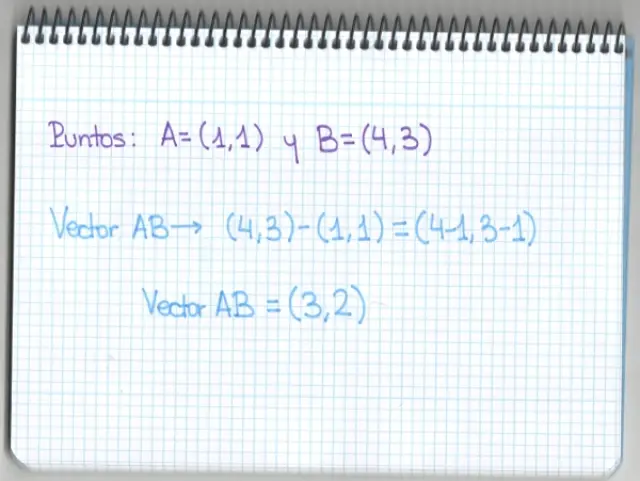 Puntos: A=(1,1) y B=(4,3)
Vector AB→ (4,3)-(1,1)=(4-1,3-1)
Vector AB =(3,2)